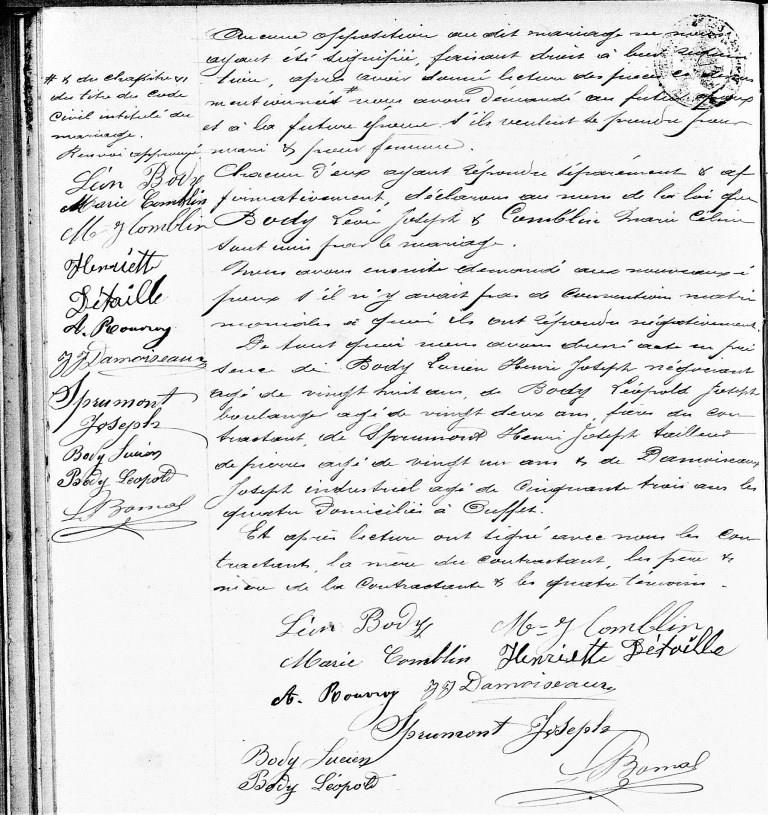 Aucune opposition au dit mariage ne nous
ayant été signifiée, faisant droit à leur réquisi
tion, après avoir donné lecture des pièces ci-dessus
mentionnées # nous avons demandé au futur époux
et à la future épouse s'ils veulent se prendre pour
mari & pour femme.
Chacun d'eux ayant répondu séparément & af
firmativement, déclarons au nom de la loi que
Body Léon Joseph & Comblin Marie Céline
sont unis par le mariage.
Nous avons ensuite demandé aux nouveaux é
poux s'il n'y avait pas de Convention matri
moniales à quoi ils ont répondu négativement.
De tout quoi nous avons dressé acte en pré
sence de Body Lucien Henri Joseph négociant
agé de vingt huit ans, de Body Léopold Joseph
boulanger agé de vingt deux ans, frères du con
tractant, de Sprumont Henri Joseph tailleur
de pierres agé de vingt un ans & de Damoiseaux
Joseph industriel agé de Cinquante trois ans les
quatre Domiciliés à Ouffet.
Et après lecture ont signé avec nous les con
tractants, la mère du contractant, les père &
mère de la Contractante & les quatre témoins.
# 6 du chapitre
du titre du Code
Civil intitulé du
mariage.
Renvoi approuvé
Léon Body
Marie Comblin
M-J Comblin
Henriette
Détaille
A. Rouvroy
JJ Damoiseaux
Sprumont
Joseph
Body Lucien
Body Léopold
L Bomal
Léon Body M-J Comblin
Marie Comblin Henriette Détaille
A. Rouvroy JJ Damoiseaux
Sprumont Joseph
Body Lucien
Body Léopold L Bomal